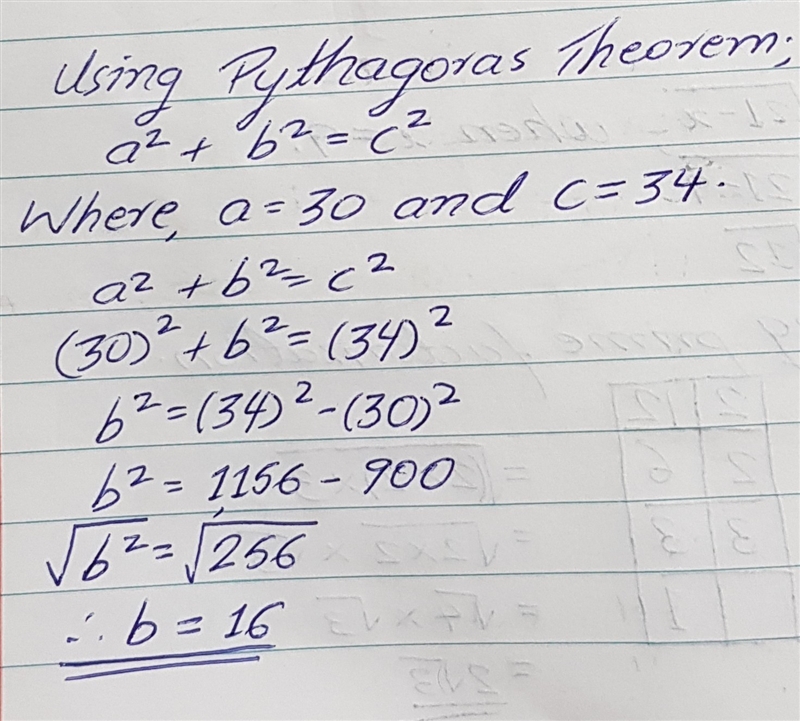 Using Pythagoras Theorem;
a² + b² = c²
Where, a = 30 and c = 34.
a² + b² = c²
(30)² + b² = (34)²
b² = (34)² - (30)²
b² = 1156 - 900
√b² = √256
∴ b = 16